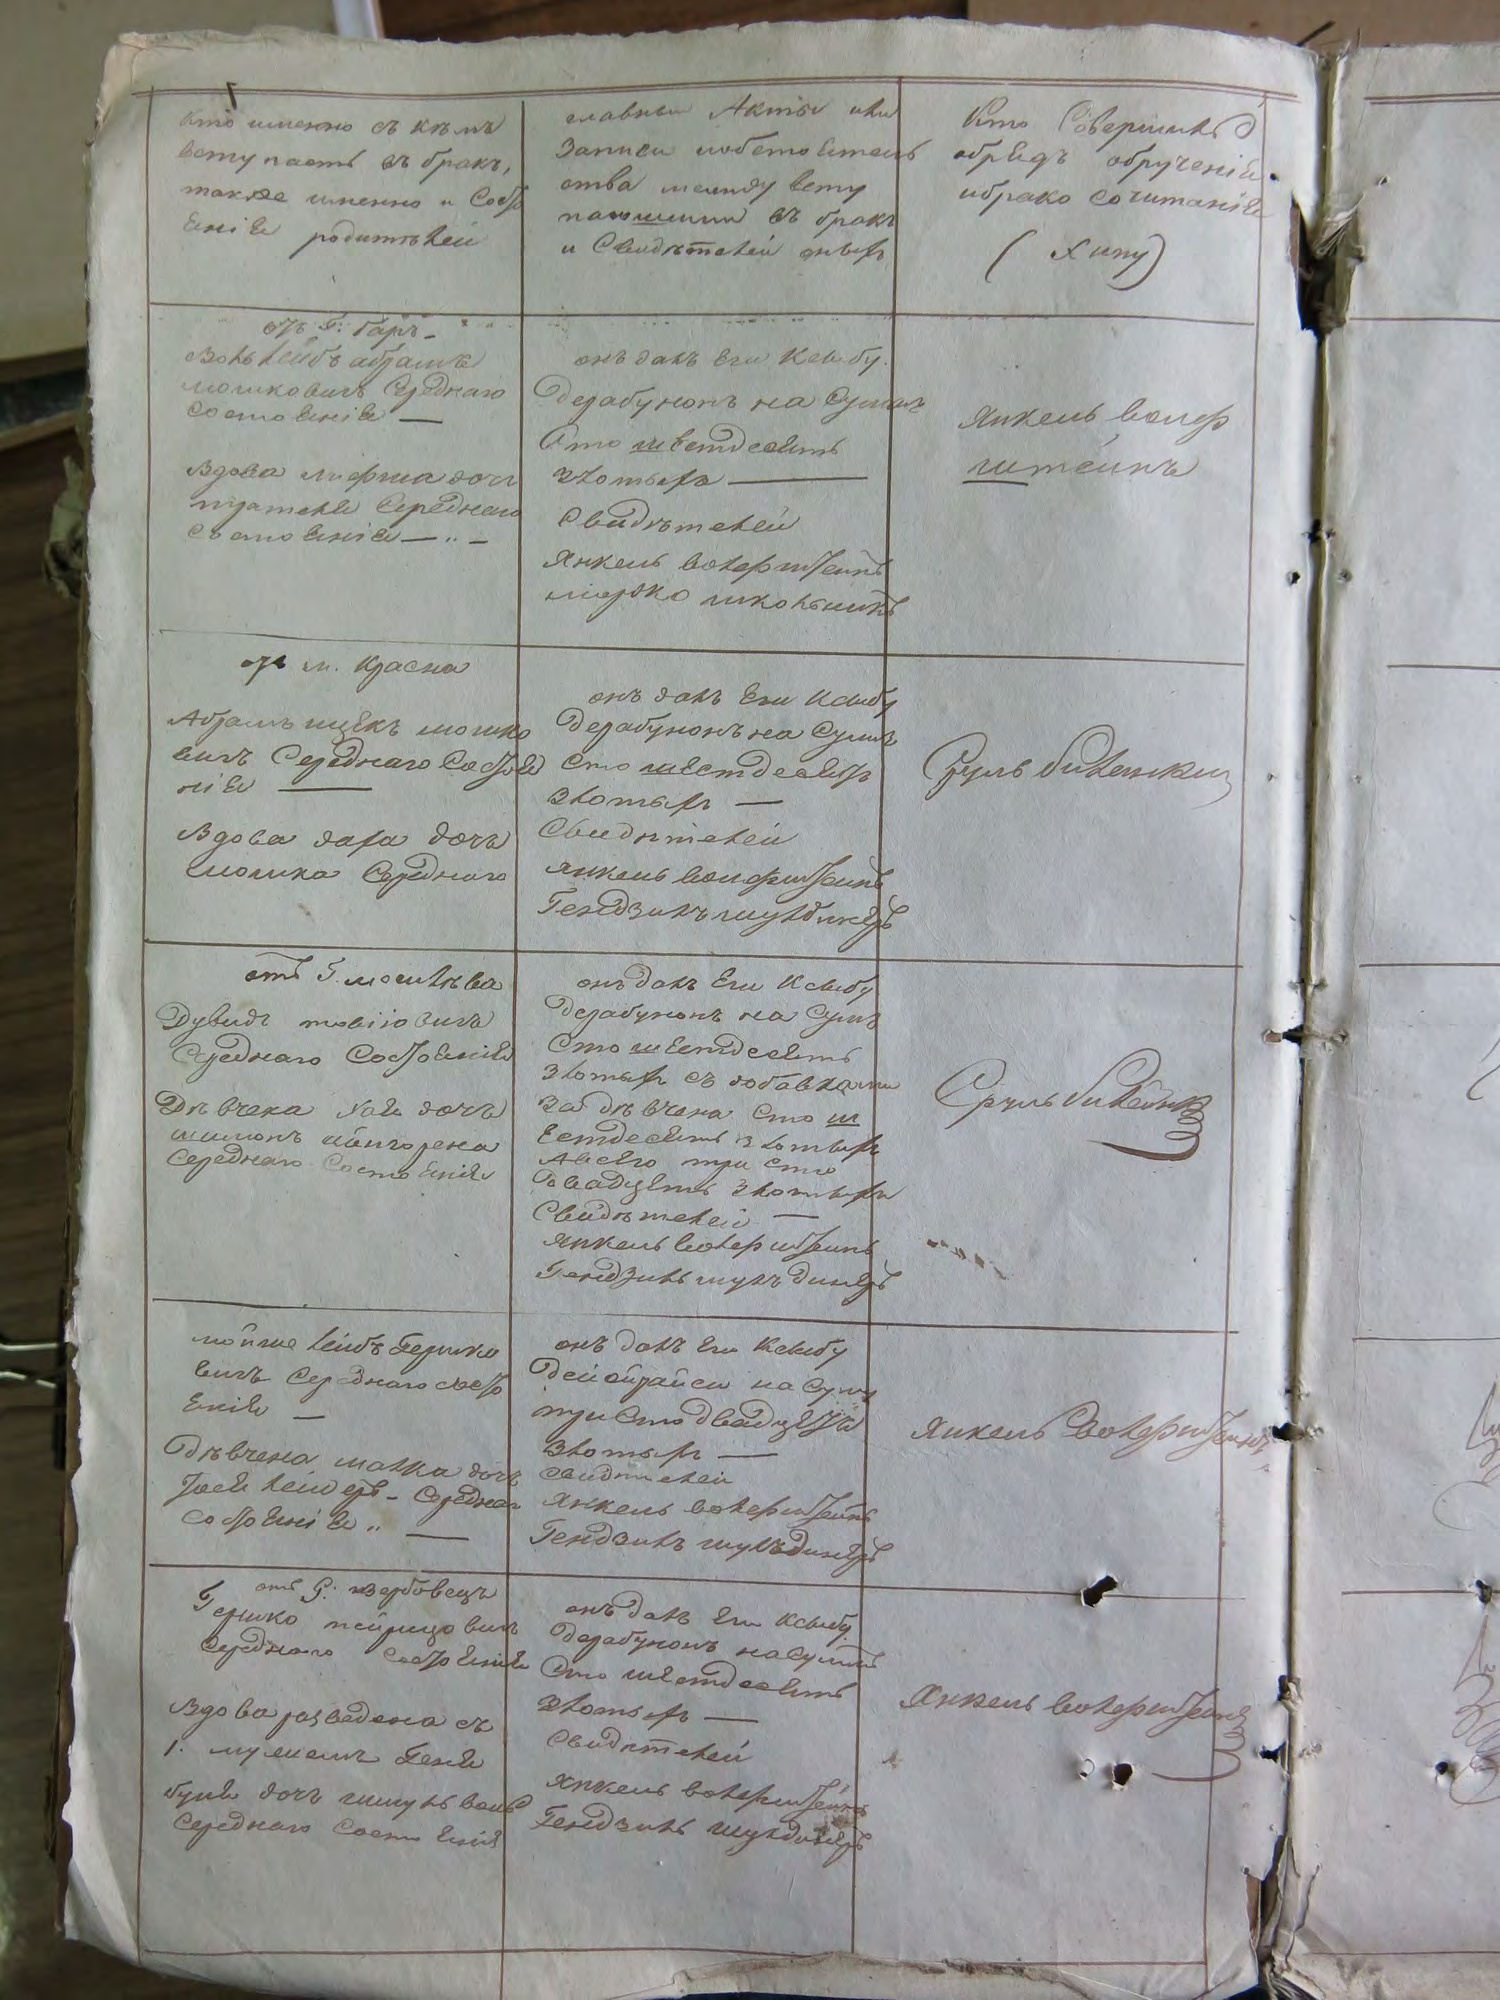 кто именно съ кемъ
вступаетъ въ бракъ,
также именно и Состо
еніе родителей
главныи Акты или
Записи иобстоятель
ства между всту
пающими въ бракъ
и Свидетелей оныхъ
Кто Совершилъ
обредъ обрученіе
ибрако сочитаніе
( Хупу )
отъ Г: Баръ
Вольлейбъ абрамъ
мошковичъ Середнаго
состоеніе —
Вдова дочъ
Середнаго
состоеніе —
онъ далъ Еи Ксыбу
Дерабунонъ на Сумъ
Сто шестдесетъ
злотыхъ —
Свидетелей
Янкель волерштеинъ
мерко школьникъ
Янкель волер
штейнъ
отъ м. Красна
Абрамъ ицекъ мошко
вичъ Середнаго Состое
ніе —
Вдова дочъ
мошка Середнаго
онъ далъ Еи Ксыбу
Дерабунонъ на Сумъ
Сто шестдесетъ
злотыхъ —
Свидетелей
Янкель волерштеинъ
Гендзиль
Сруль
отъ Г. могилева
Дувидъ товіiовичъ
Середнаго Состоеніе
Девчена Хая дочъ
шимонъ
Середнаго Состоеніе
онъ далъ Еи Ксыбу
Дерабунонъ на Сумъ
Сто шестдесетъ
злотыхъ съ добавками
За девчена Сто ш
Естдесетъ злотыхъ
Авсего три сто
Двадцеть злотыхъ
Свидетелей —
Янкель волерштеинъ
Гендзиль шулъдинеръ
Сруль
мойше лейбъ Гершко
вичъ Середнаго состо
Еніе —
Девчена малка дочъ
Середнаго
состоеніе —
онъ далъ Еи Ксыбу
Деиойрайси на Суму
три Сто двадцеть
злотыхъ —
свидетелей
Янкель волерштеинъ
Гендзиль шулъдинеръ
Янкель волерштеинъ
отъ Г: вербовецъ
Гершко пейрецовичъ
Середнаго состоеніе
Вдова разведена съ
1. мужемъ Геня
дочъ
Середнаго Состоеніе
онъ далъ Еи Ксыбу
Дерабунонъ на Сумъ
Сто шестдесетъ
злотыхъ —
Свидетелей
Янкель волерштеинъ
Гендзиль шулдинеръ
Янкель волерштеинъ